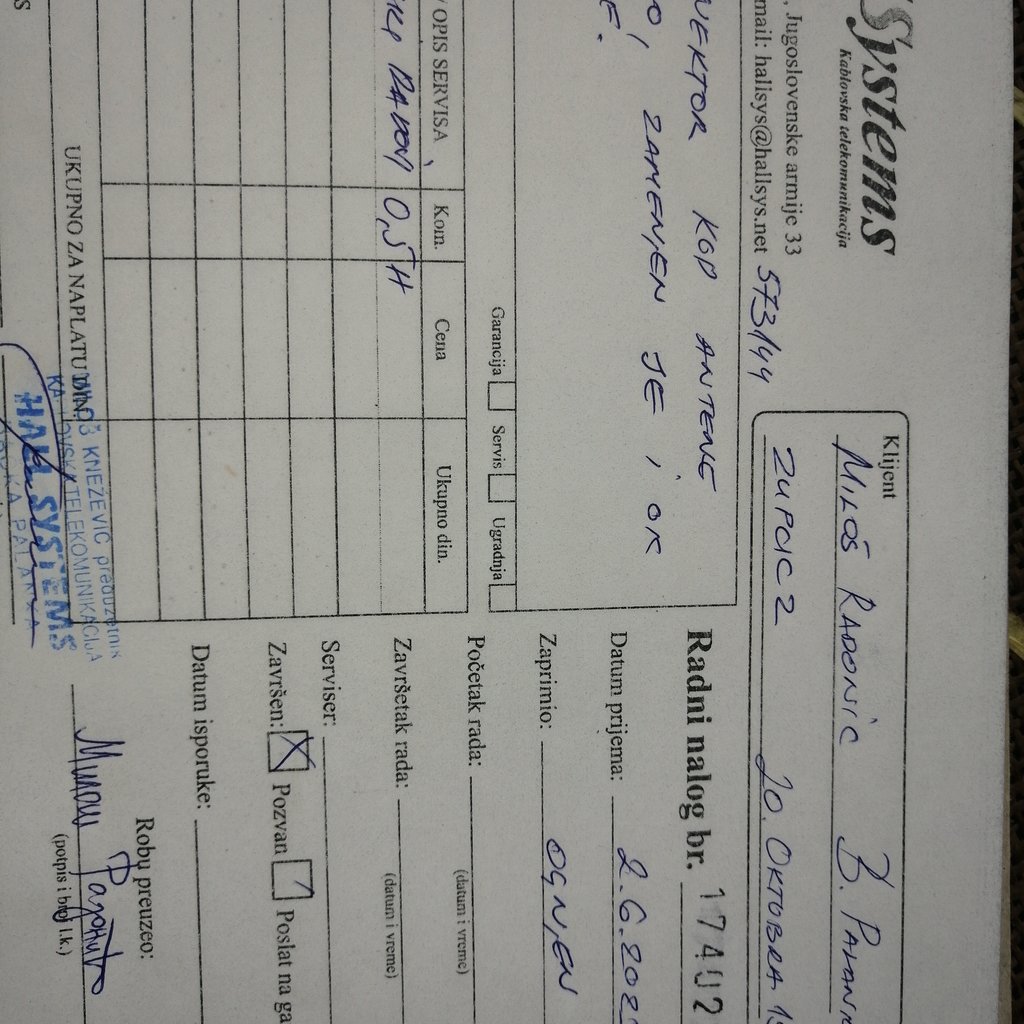 Systems
Kablovska telekomunikacija
, Jugoslovenske armije 33
mail: halisys@hallsys.net 573144
Klijent
MILOŠ RADONIĆ B. PALAN
ZUPAC 2 20. OKTOBRA
Radni nalog br. 17402
Datum prijema: 2.6.202
Zaprimio: OGNJEN
Početak rada:
(datum i vreme)
Završetak rada:
(datum i vreme)
Serviser:
Završen: X Pozvan Poslat na ga
Datum isporuke:
Robu preuzeo:
Милош Радонић
(potpis i broj l.k.)
NEKTOR KOD ANTENE
O, ZAMENJEN JE I OK
E.
Garancija Servis Ugradnja
OPIS SERVISA Kom. Cena Ukupno din.
0,5H
UKUPNO ZA NAPLATU DIN.
KNEŽEVIĆ preduzetnik
TELEKOMUNIKACIJA
SYSTEMS
PALANKA